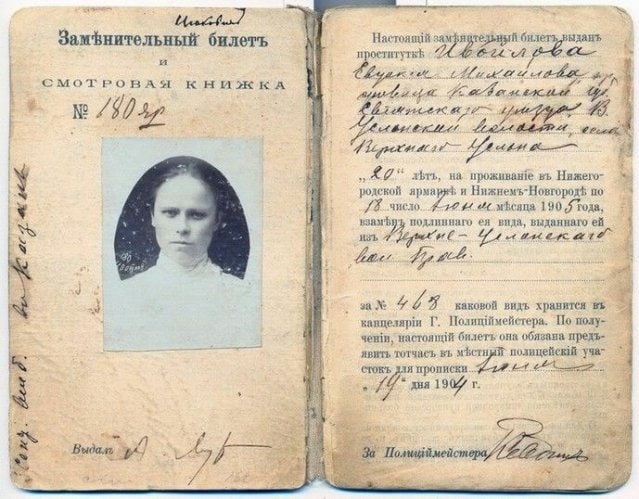 Замѣнительный билетъ
и
СМОТРОВАЯ КНИЖКА
№ 180 яр
Выдалъ
Настоящій замѣнительный билетъ выданъ
проституткѣ Ивойлова
Евдокия Михайлова, кр
Казанской губ
Свіяжскаго уѣзда, В.
Услонской волости, села
Верхняго Услона
„20“ лѣтъ, на проживаніе въ Нижего-
родской ярмаркѣ и Нижнемъ-Новгородѣ по
18 число Іюня мѣсяца 1905 года,
взамѣнъ подлиннаго ея вида, выданнаго ей
изъ Верхне-Услонскаго
вол Прав.
за № 468 каковой видъ хранится въ
канцеляріи Г. Полиціймейстера. По полу-
ченіи, настоящій билетъ она обязана предъ-
явить тотчасъ въ мѣстный полицейскій уча-
стокъ для прописки Іюня
„19“ дня 1904 г.
За Полиціймейстера